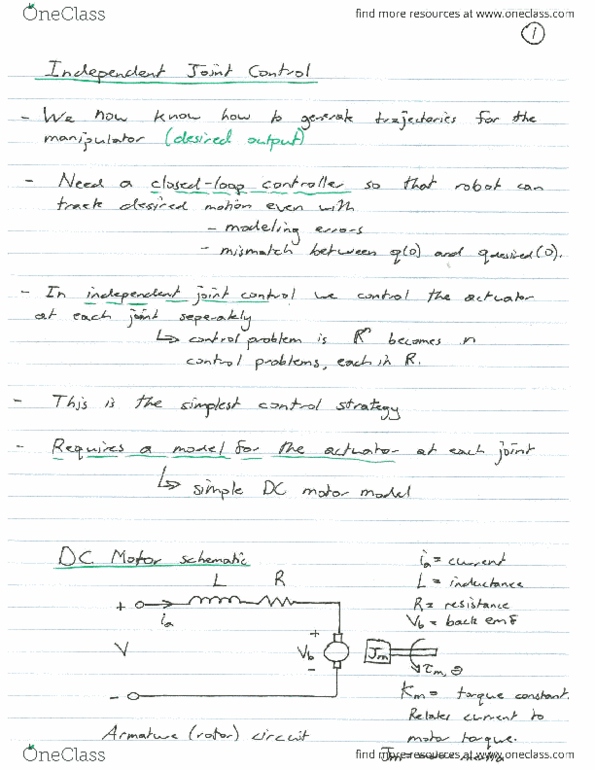 OneClass
find more resources at www.oneclass.com
1
Independent Joint Control
- We now know how to generate trajectories for the
manipulator (desired output)
- Need a closed-loop controller so that robot can
track desired motion even with
- modeling errors
- mismatch between q(0) and qdesired(0).
- In independent joint control we control the actuator
at each joint seperately
↳ control problem is Rⁿ becomes n
control problems, each in R.
- This is the simplest control strategy
- Requires a model for the actuator at each joint
↳ simple DC motor model
DC Motor schematic
L R
+ ia
V
-
+ Vb -
Jm
τm, θ
Armature (rotor) circuit
ia = current
L = inductance
R = resistance
Vb = back emf
Km = torque constant.
Relates current to
motor torque.
OneClass
find more resources at www.oneclass.com